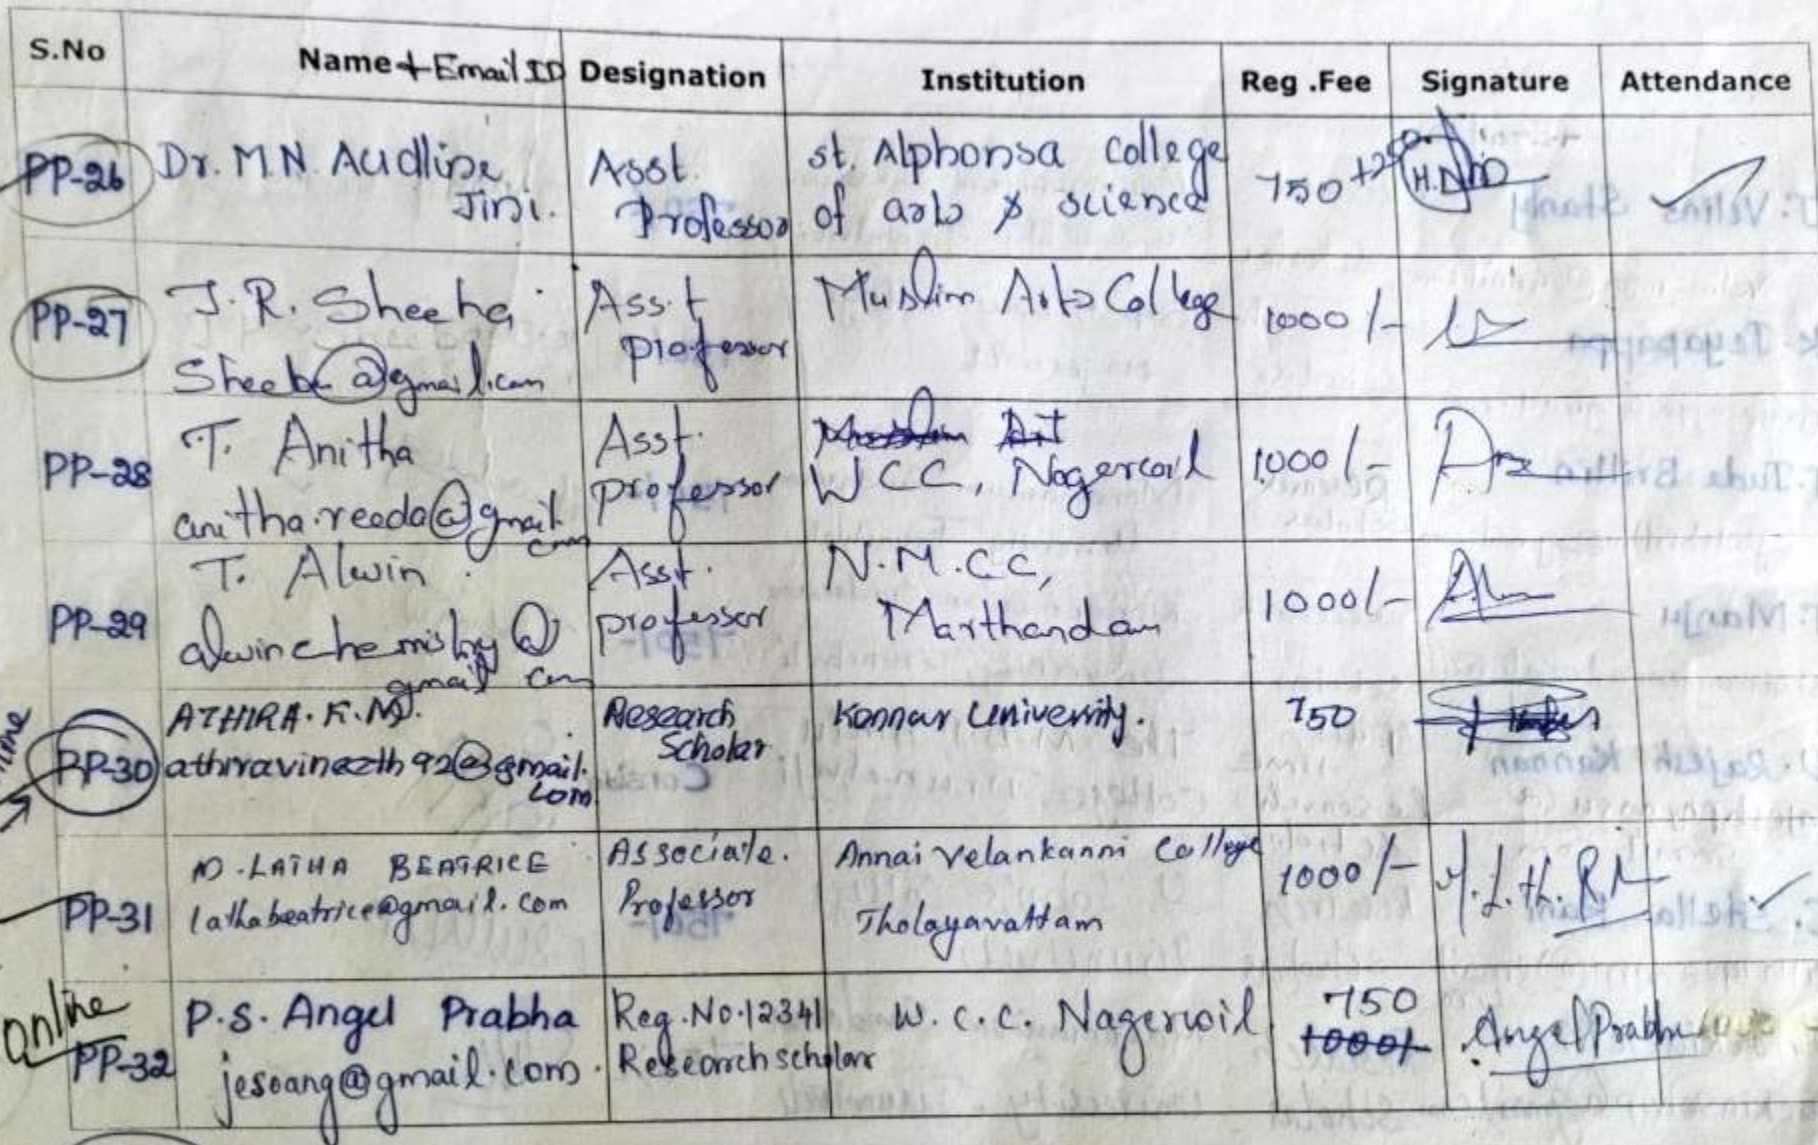 S.No Name + Email ID Designation Institution Reg .Fee Signature Attendance
PP-26 Dr. M.N. Audline Jini. Asst. Professor st. Alphonsa college of arts & science 750 +250
PP-27 J. R. Sheeba Sheeba@gmail.com Asst professor Muslim Arts College 1000/-
PP-28 T. Anitha anitha.reeda@gmail.com Asst. professor WCC, Nagercoil 1000/-
PP-29 T. Alwin alwinchemistry@gmail com Asst. professor N.M.CC, Marthandam 1000/-
PP-30 ATHIRA. K.M. athiravineeth92@gmail.com Research Scholar Kannur University. 750
PP-31 D.LATHA BEATRICE lathabeatrice@gmail.com Associate. Professor Annai Velankanni College Tholayavattam 1000/-
online
PP-32 P.S. Angel Prabha jesoang@gmail.com. Reg.No.12341 Research scholar W.C.C. Nagercoil 750 1000/- Angel Prabha